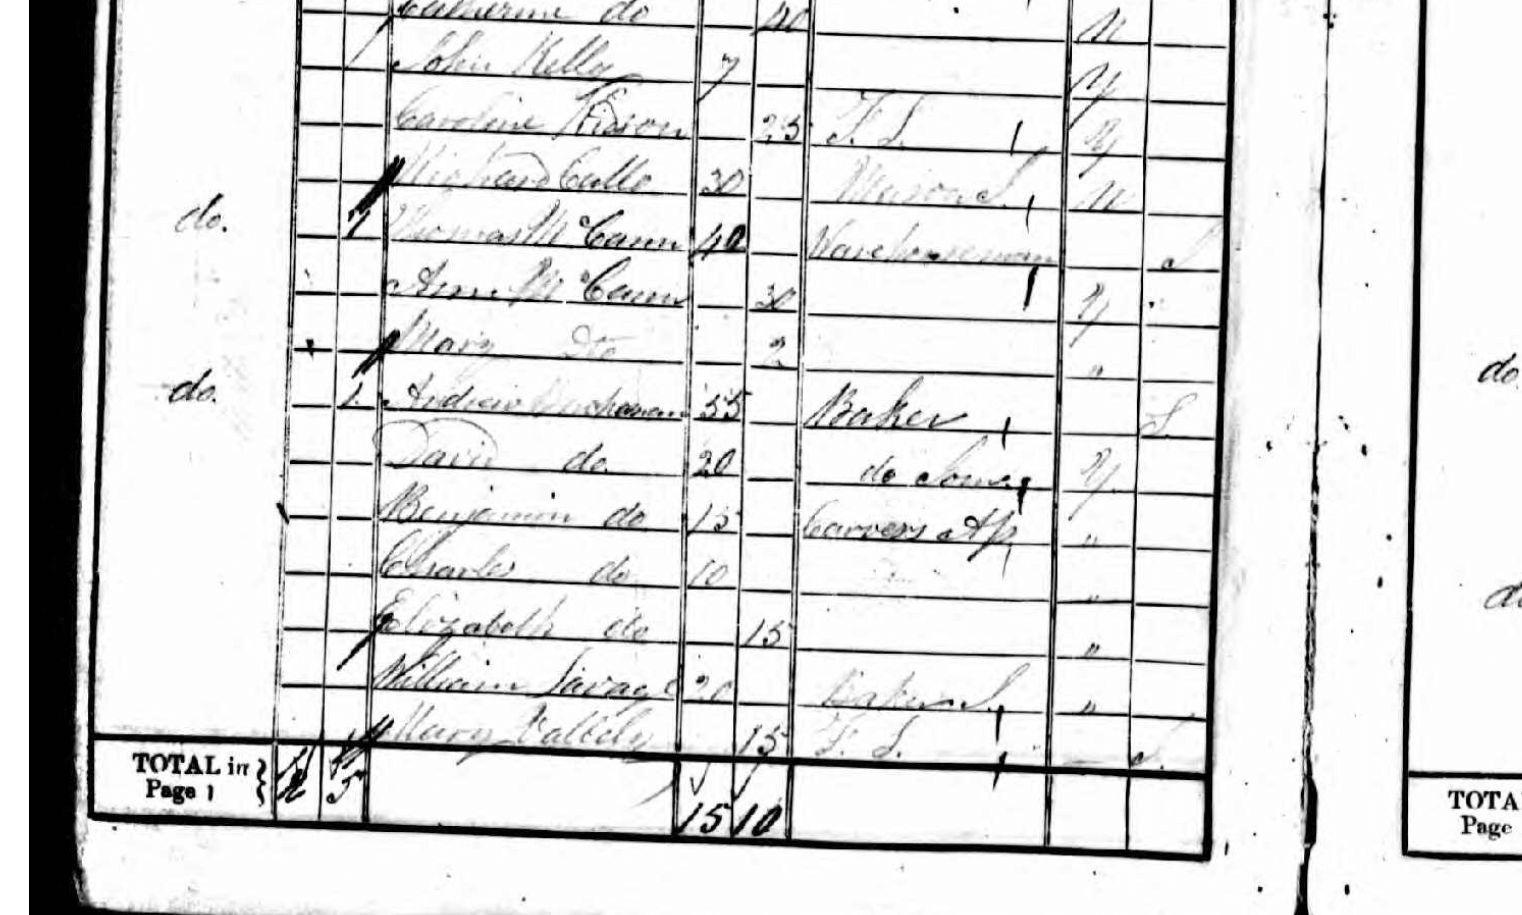 Catherine do 40 N
1 John Kelly 7 Y
Caroline 25 F. S. Y
Richard Calls 30 Mason J. N
do. 1 Thomas McCann 40 Warehouseman S
Ann McCann 30 Y "
Mary Dto 2 "
do. 1 Andrew 55 Baker S
David do 20 do Y
Benjamin do 15 Carvers Ap "
Charles do 10 "
Elizabeth do 15 "
William Savage 20 Baker J. "
Mary 15 F. S. S.
TOTAL in } 5
Page 1 15 10
do
TOTA
Page